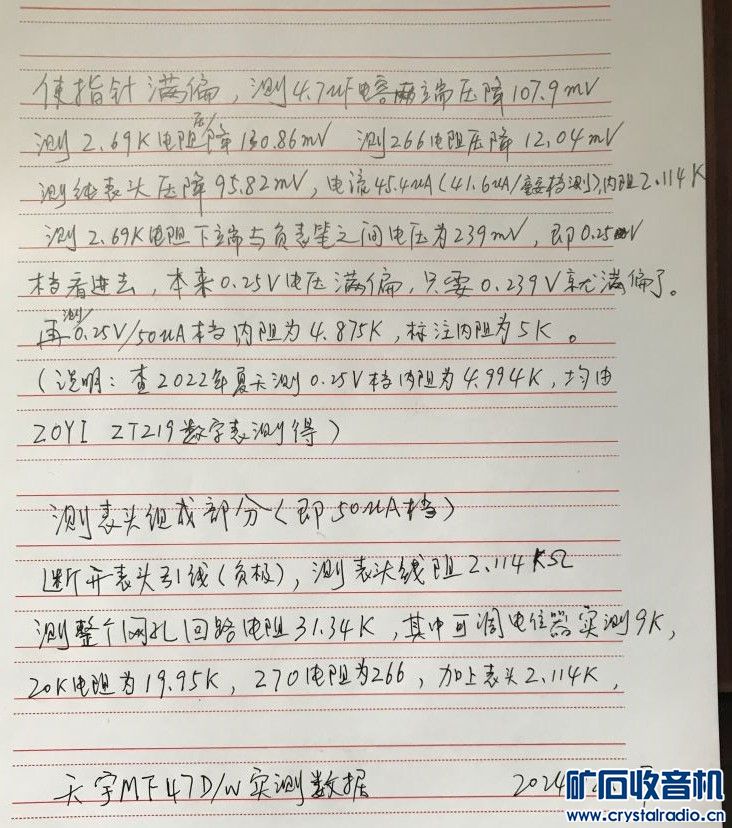 使指针满偏，测4.7uF电容两端压降107.9mV
测2.69K电阻压降130.86mV 测266电阻压降12.04mV
测纯表头压降95.82mV，电流45.4uA(41.6uA/ 档测)，内阻2.114K
测2.69K电阻下端与负表笔之间电压为239mV，即0.25V
档看进去，本来0.25V电压满偏，只要0.239V就满偏了。
再测0.25V/50uA档内阻为4.875K，标注内阻为5K。
(说明：查2022年夏天测0.25V档内阻为4.994K，均由
ZOYI ZT219数字表测得)
测表头组成部分(即50uA档)
断开表头引线(负极)，测表头线阻2.114KΩ
测整个网孔回路电阻31.34K，其中可调电位器实测9K，
20K电阻为19.95K，270电阻为266，加上表头2.114K，
天宇MF47D/W实测数据 2024
矿石收音机
www.crystalradio.cn